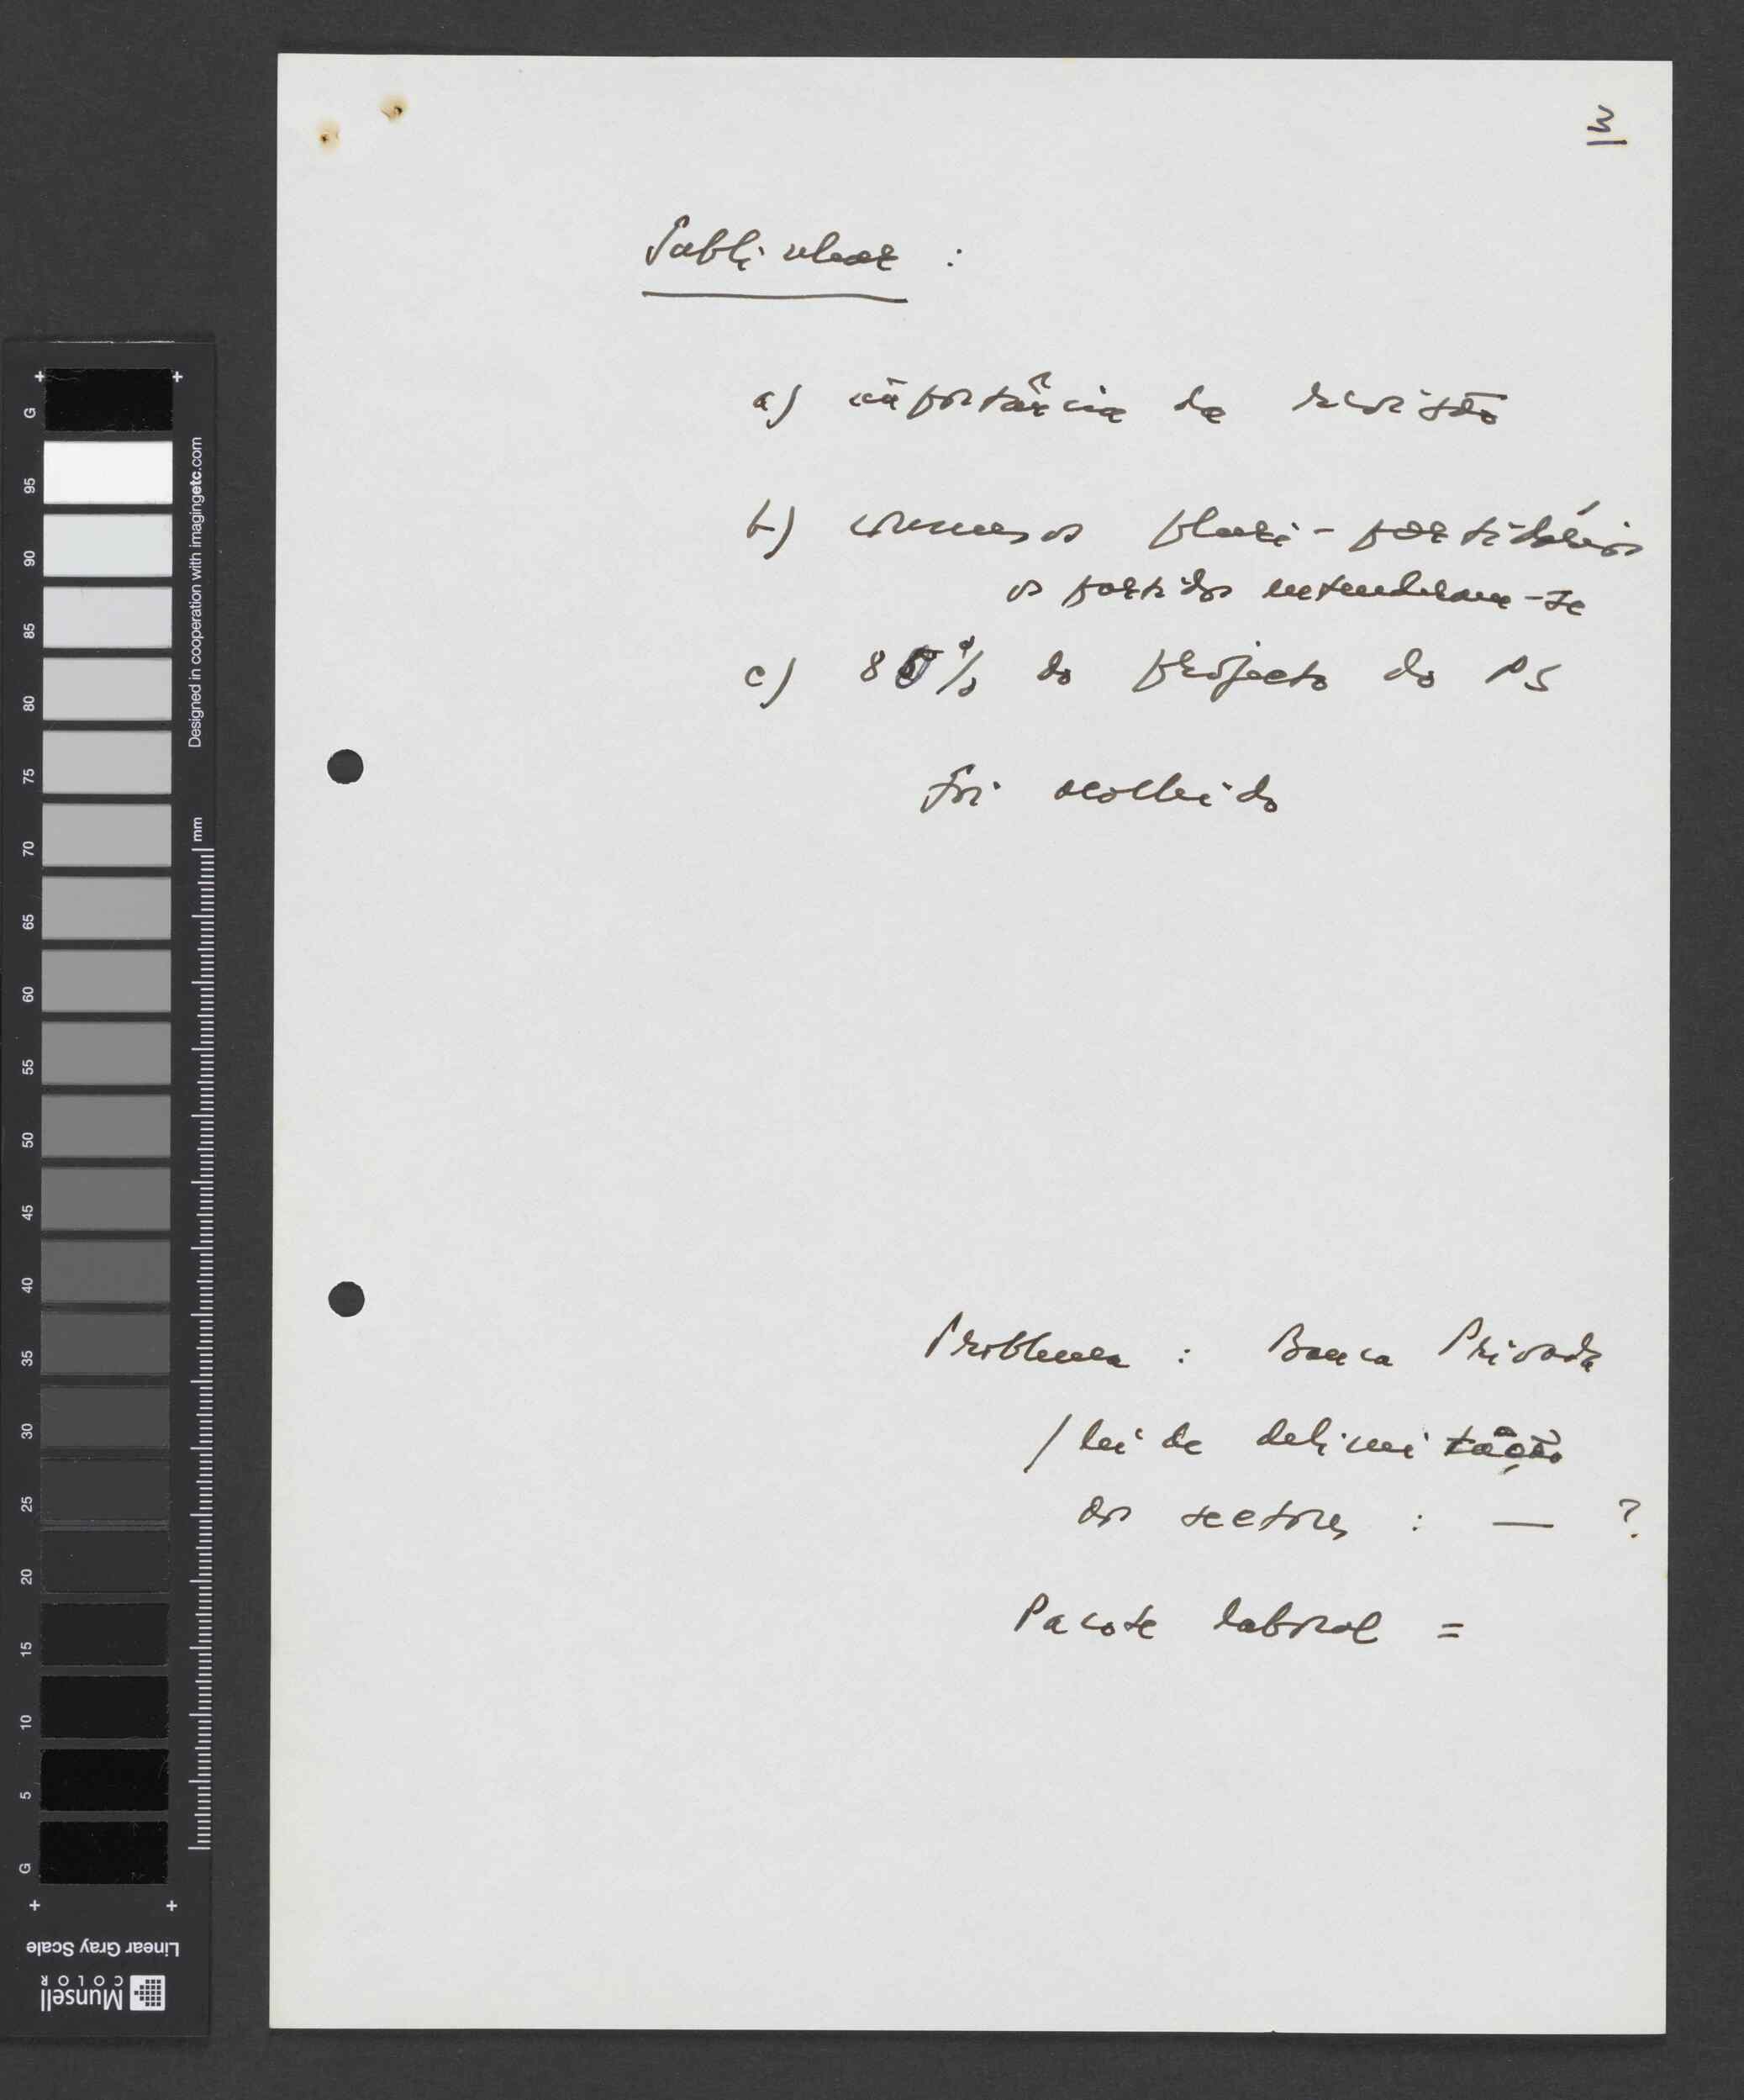 3
Sublinhar :
a) importância da revisão
b) consensos pluri-partidários
os partidos entenderam-se
c) 85% do projecto do PS
foi acolhido
Problema : Banca Privada
/ lei de delimitação
dos sectores : — ?
Pacote laboral =
G
95
90
85
80
75
70
65
60
55
50
45
40
35
30
25
20
15
10
5
G
Designed in cooperation with imagingetc.com
mm
Linear Gray Scale
Munsell
COLOR